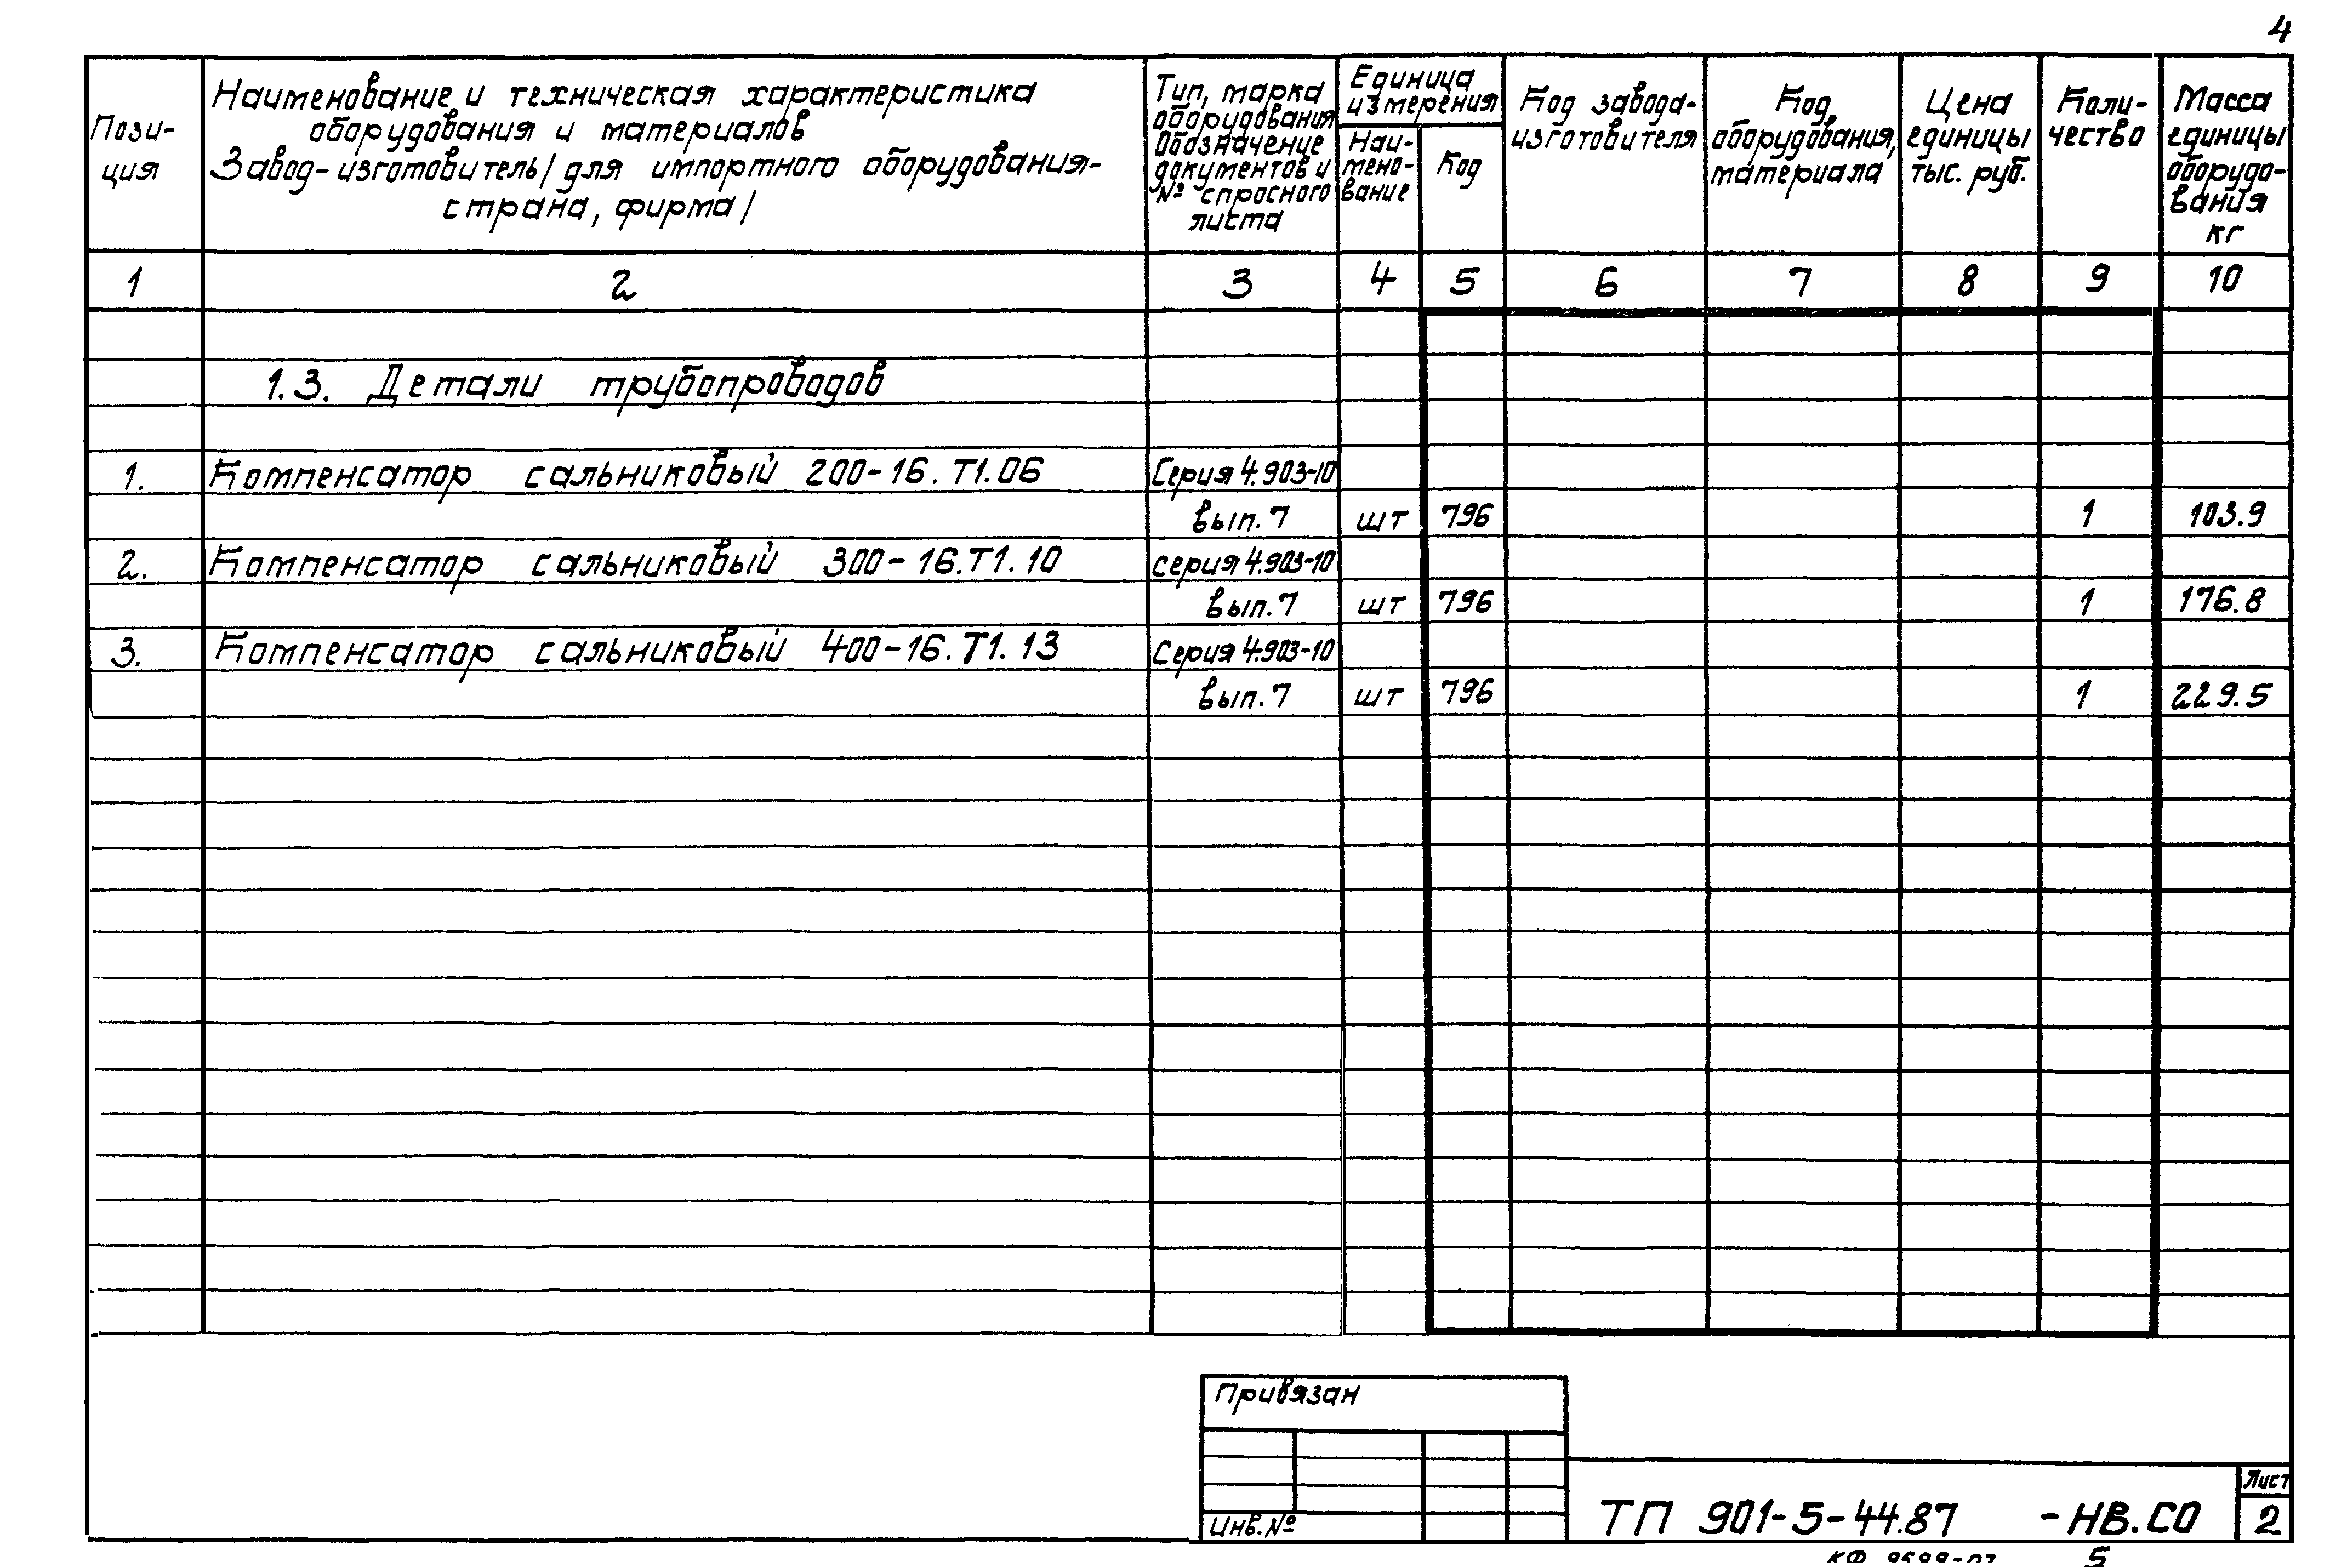 4
Пози-
ция
Наименование и техническая характеристика
оборудования и материалов
Завод-изготовитель/для импортного оборудования-
страна, фирма/
Тип, марка
оборудования
Обозначение
документов и
№ спросного
листа
Единица
измерения
Наи-
мено-
вание
Код
Код завода-
изготовителя
Код
оборудования,
материала
Цена
единицы
тыс. руб.
Коли-
чество
Масса
единицы
оборудо-
вания
кг
1 2 3 4 5 6 7 8 9 10
1.3. Детали трубопроводов
1. Компенсатор сальниковый 200-16.Т1.06 Серия 4.903-10
вып.7 шт 796 1 103.9
2. Компенсатор сальниковый 300-16.Т1.10 серия 4.903-10
вып.7 шт 796 1 176.8
3. Компенсатор сальниковый 400-16.Т1.13 Серия 4.903-10
вып.7 шт 796 1 229.5
Привязан
Инв.№
ТП 901-5-44.87 -НВ.СО
Лист
2
5